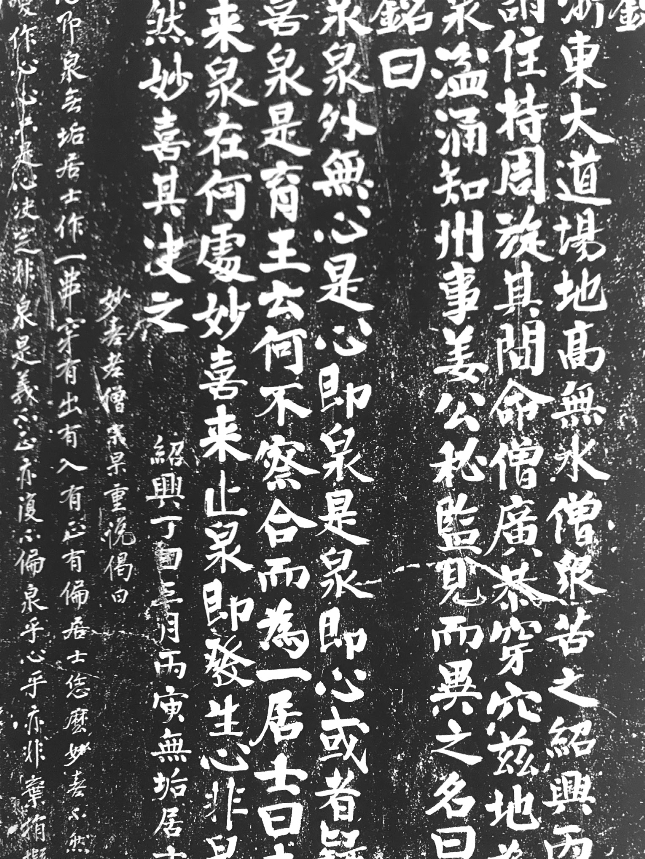 銘
浙東大道場地高無水僧眾苦之紹興丙
詔住持周旋其間命僧廣恭穿穴茲地為
泉溢涌知州事姜公秘監見而異之名曰
銘曰
泉泉外無心是心即泉是泉即心或者疑
喜泉是育王云何不察合而為一居士曰
来泉在何處妙喜来止泉即發生心非泉
然妙喜其决之
紹興丁卯三月丙寅無垢居士
妙喜老僧宗杲重說偈曰
心即泉無垢居士作一串穿有出有入有正有偏居士恁麼妙喜不然
作心心亦是心决定非泉是義不正亦復不偏泉乎心乎亦非棄捐擬